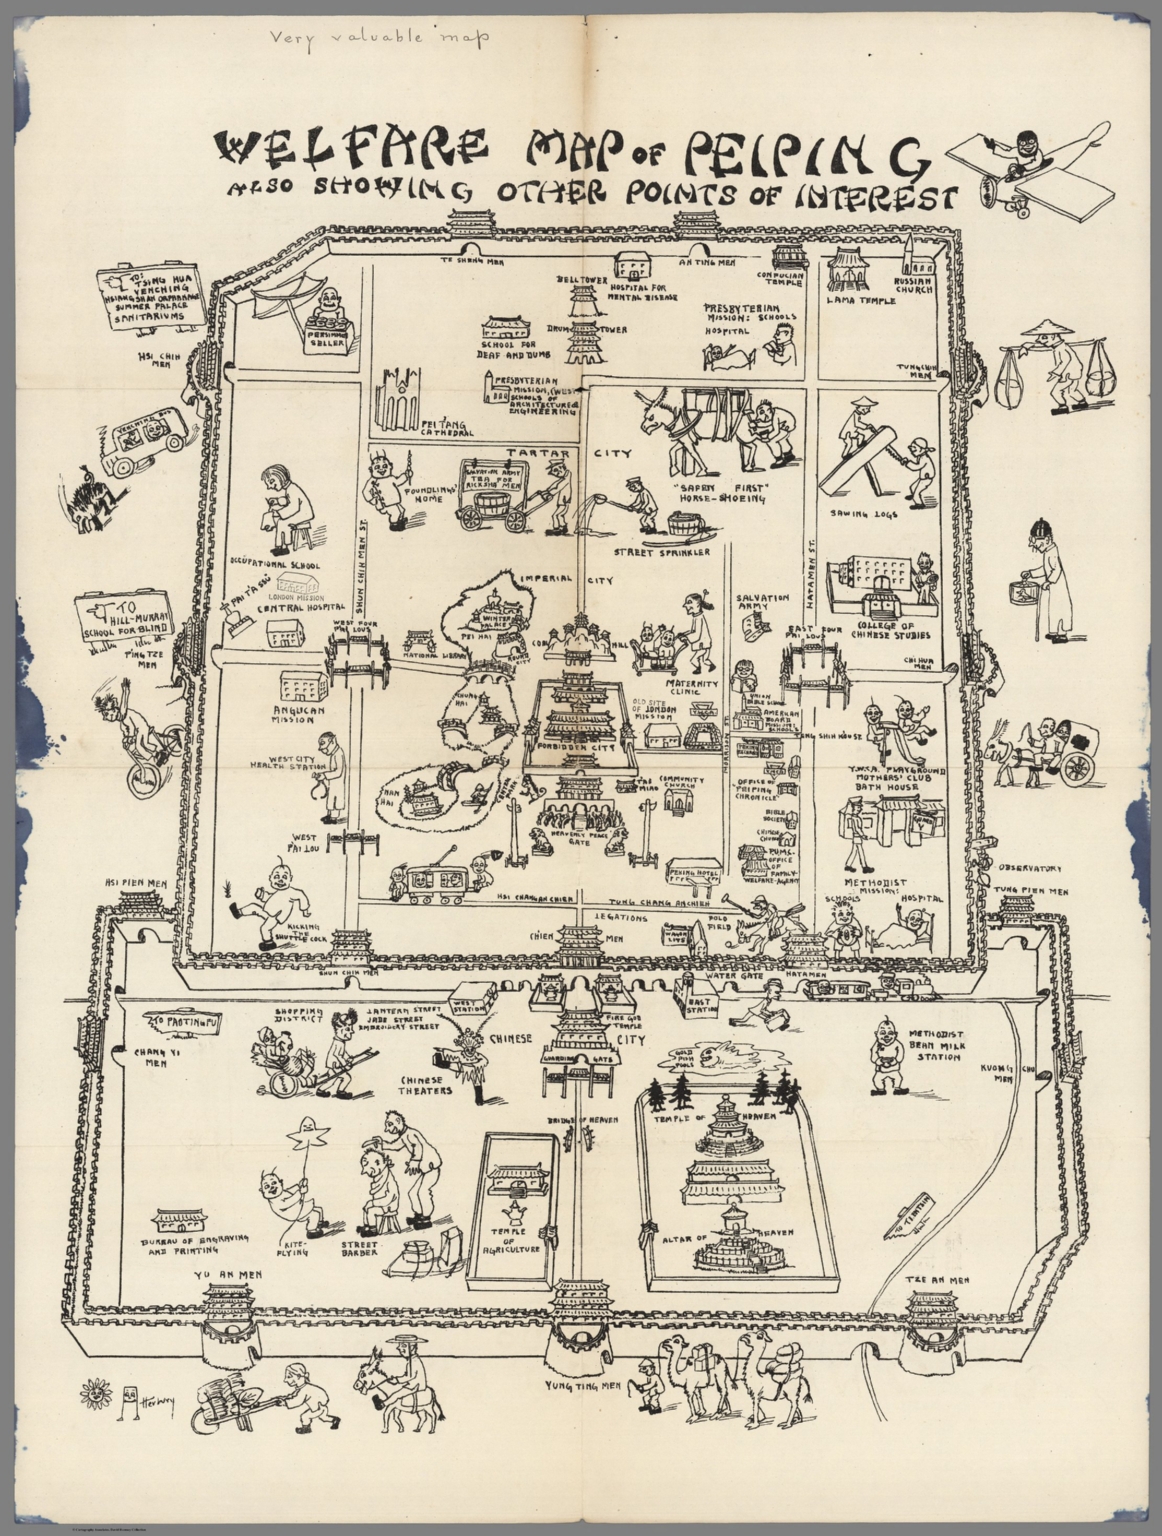 Very valuable map
WELFARE MAP OF PEIPING
ALSO SHOWING OTHER POINTS OF INTEREST
TE SHENG MEN
AN TING MEN
TO:
TSING HUA
YENCHING
HSIANG SHAN ORPHANAGE
SUMMER PALACE
SANITARIUMS
HSI CHIH
MEN
PERSIMMON
SELLER
BELL TOWER
HOSPITAL FOR
MENTAL DISEASE
CONFUCIAN
TEMPLE
LAMA TEMPLE
RUSSIAN
CHURCH
SCHOOL FOR
DEAF AND DUMB
DRUM TOWER
PRESBYTERIAN
MISSION: SCHOOLS
HOSPITAL
TUNG CHIH
MEN
PEI TANG
CATHEDRAL
PRESBYTERIAN
MISSION, (WEST)
SCHOOLS OF
ARCHITECTURE &
ENGINEERING
YENCHING BUS
TARTAR CITY
FOUNDLINGS'
HOME
SALVATION ARMY
TEA FOR
RICKSHA MEN
"SAFETY FIRST"
HORSE-SHOEING
SAWING LOGS
STREET SPRINKLER
OCCUPATIONAL SCHOOL
SHUN CHIH MEN ST.
HATAMEN ST.
IMPERIAL CITY
PAI T'A SSU
LONDON MISSION
CENTRAL HOSPITAL
TO
HILL-MURRAY
SCHOOL FOR BLIND
P'ING TZE
MEN
WEST FOUR
PAI LOUS
NATIONAL LIBRARY
WINTER
PALACE
PEI HAI
ROUND
CITY
COAL HILL
SALVATION
ARMY
COLLEGE OF
CHINESE STUDIES
EAST FOUR
PAI LOUS
CHI HUA
MEN
ANGLICAN
MISSION
CHUNG
HAI
MATERNITY
CLINIC
OLD SITE
OF LONDON
MISSION
UNION
BIBLE SCHOOL
AMERICAN
BOARD
MISSION:
SCHOOLS
FORBIDDEN CITY
MORRISON ST.
WEST CITY
HEALTH STATION
NAN
HAI
TAI
MIAO
COMMUNITY
CHURCH
OFFICE OF
"PEIPING
CHRONICLE"
Y.W.C.A. PLAYGROUND
MOTHERS' CLUB
BATH HOUSE
BIBLE
SOCIETY
WEST
P'AI LOU
HEAVENLY PEACE
GATE
P.U.M.C.
OFFICE
OF
FAMILY
WELFARE-AGENCY
PEKING HOTEL
OBSERVATORY
HSI PIEN MEN
TUNG PIEN MEN
KICKING
THE
SHUTTLE COCK
HSI CHANG AN CHIEH
TUNG CHANG AN CHIEH
METHODIST
MISSION:
SCHOOLS
HOSPITAL
LEGATIONS
POLO
FIELD
CHIEN MEN
SHUN CHIH MEN
WATER GATE
HATAMEN
TO PAOTINGFU
CHANG YI
MEN
SHOPPING
DISTRICT
LANTERN STREET
JADE STREET
EMBROIDERY STREET
WEST
STATION
EAST
STATION
FIRE GOD
TEMPLE
CHINESE CITY
GUARDING GATE
CHINESE
THEATERS
GOLD
FISH
POOLS
METHODIST
BEAN MILK
STATION
KUONG CHU
MEN
BRIDGE OF HEAVEN
TEMPLE OF HEAVEN
TEMPLE
OF
AGRICULTURE
ALTAR OF HEAVEN
BUREAU OF ENGRAVING
AND PRINTING
KITE-
FLYING
STREET
BARBER
TO TIENTSIN
YU AN MEN
TZE AN MEN
YUNG TING MEN